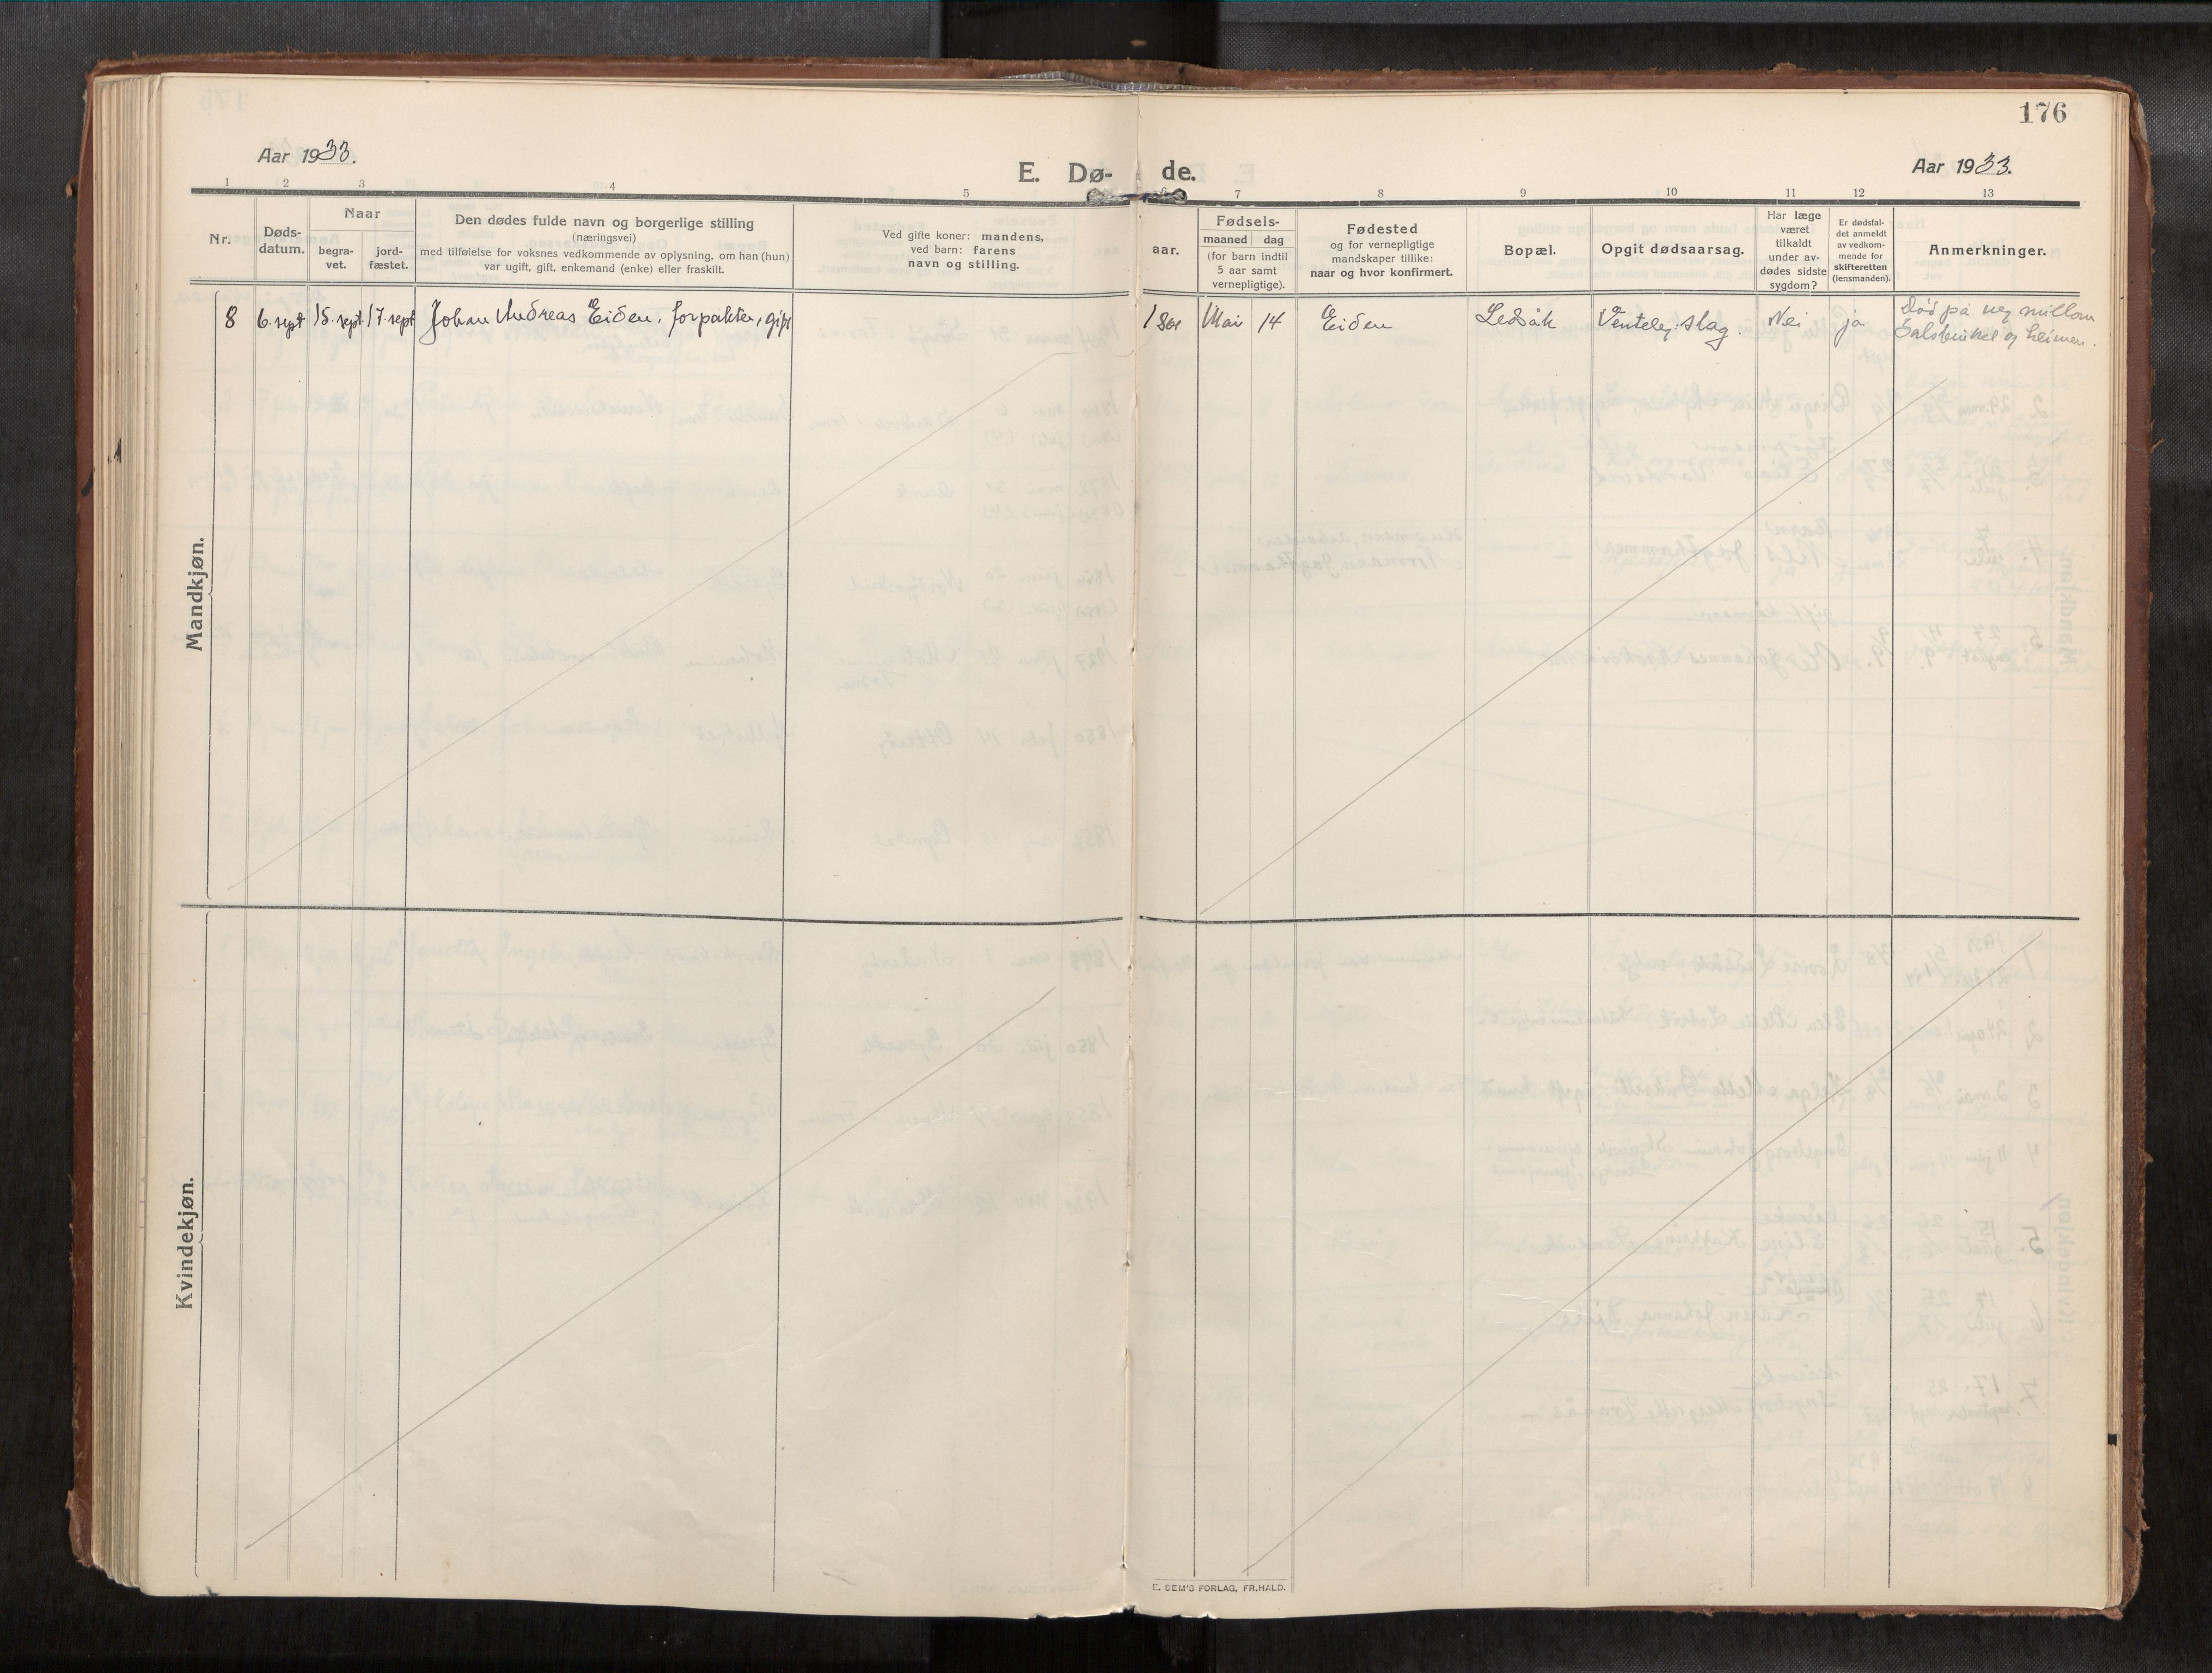 176
Aar 1933.
E. Dø-
de.
Aar 1933.
1 2 3 4 5 6 7 8 9 10 11 12 13
Nr.
Døds-
datum.
Naar
begra-
vet.
jord-
fæstet.
Den dødes fulde navn og borgerlige stilling
(næringsvei)
med tilføielse for voksnes vedkommende av oplysning, om han (hun)
var ugift, gift, enkemand (enke) eller fraskilt.
Ved gifte koner: mandens,
ved barn: farens
navn og stilling.
Fødsels-
aar.
maaned dag
(for barn indtil
5 aar samt
vernepligtige).
Fødested
og for vernepligtige
mandskaper tillike:
naar og hvor konfirmert.
Bopæl.
Opgit dødsaarsag.
Har læge
været
tilkaldt
under av-
dødes sidste
sygdom?
Er dødsfal-
det anmeldt
av vedkom-
mende for
skifteretten
(lensmanden).
Anmerkninger.
8 6. sept 15. sept 17. sept Johan Andreas Eiden, forpakter, gift
Mai 14 Eiden Ledsåk slag. Nei ja
Død på veg millom
og heimen.
Mandkjøn.
Kvindekjøn.
E. SEM'S FORLAG, FR.HALD.